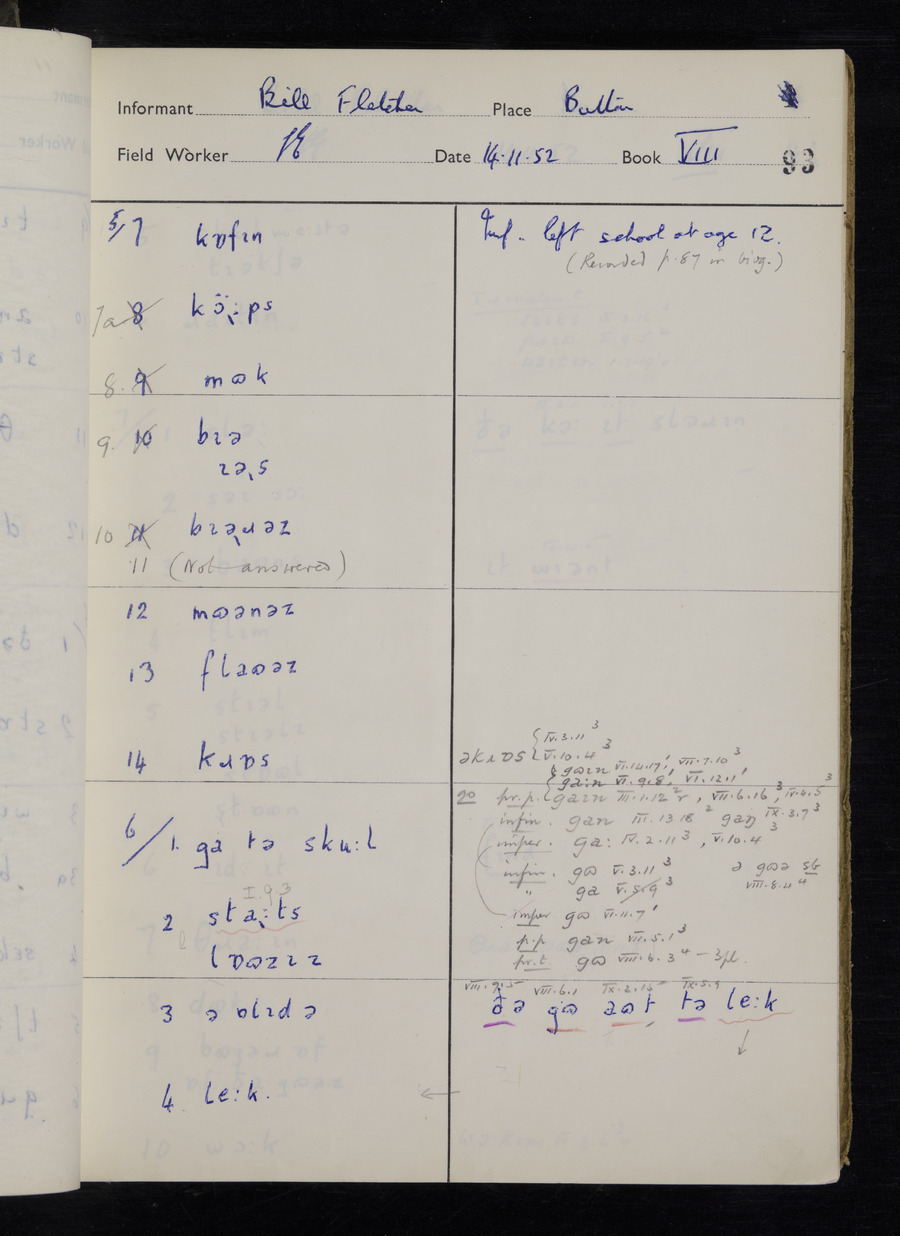 Informant Bill Fletcher Place
Field Worker Date 14.11.52 Book VIII 93
5/7 kɒfɪn
Inf. left school at age 12.
(Recorded p.87 in biog.)
7a 8 kɔ̈̈˞:ps
8. 9 mɷk
9. 10 bɪə
ɪə˞s
10 11 bɪə˞ɹəz
11 (Not answered)
12 mɷənəz
13 flaɷəz
14 kɹɒs
əkɹɒs { IV.3.11³
V.10.4³
gɷɪn VI.14.17¹, VII.7.10³
ga:n VI.9.8¹, VI.12.1¹
go pr.p. gaɪn III.1.12²r, VII.6.16³, IV.4.5³
infin. gan III.13.18² gaŋ IX.3.7³
imper. ga: IV.2.11³, V.10.4³
infin. gɷ V.3.11³ ə gɷə sb
" ga V.5.9³ VIII.8.4⁴
imper gɷ VI.11.7¹
p.p gan VII.5.1³
pr.t. gɷ VIII.6.3⁴ – 3pl.
6/1. ga tə sku:l
I.9.3
2 sta˞:ts
lɒɷzɪz
VIII.9.5 VIII.6.1 IX.2.15 IX.5.9
3 ə ɒlɪdə
ðə gɷ aɷt tə le:k
4 le:k.